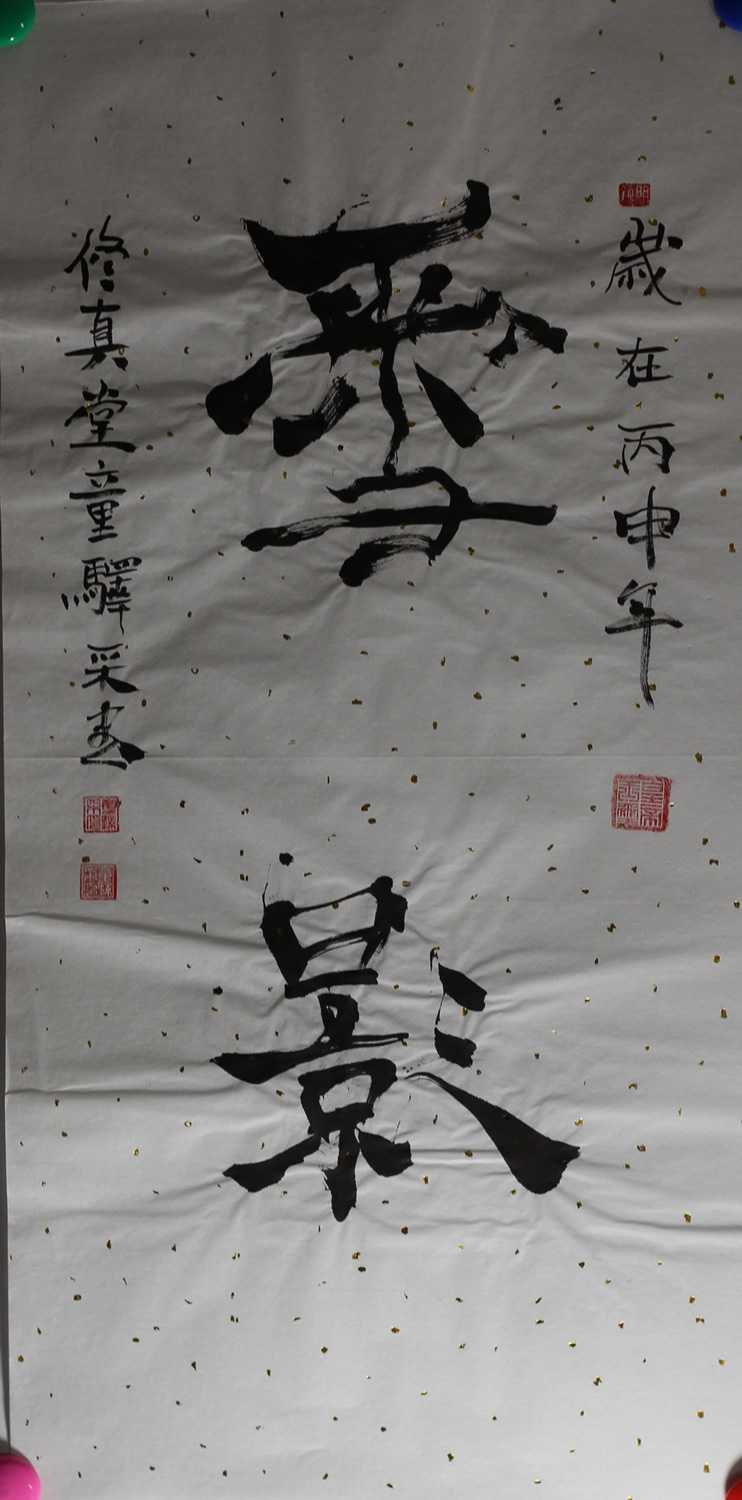 歲在丙申年
雪影
修真堂童驛采書